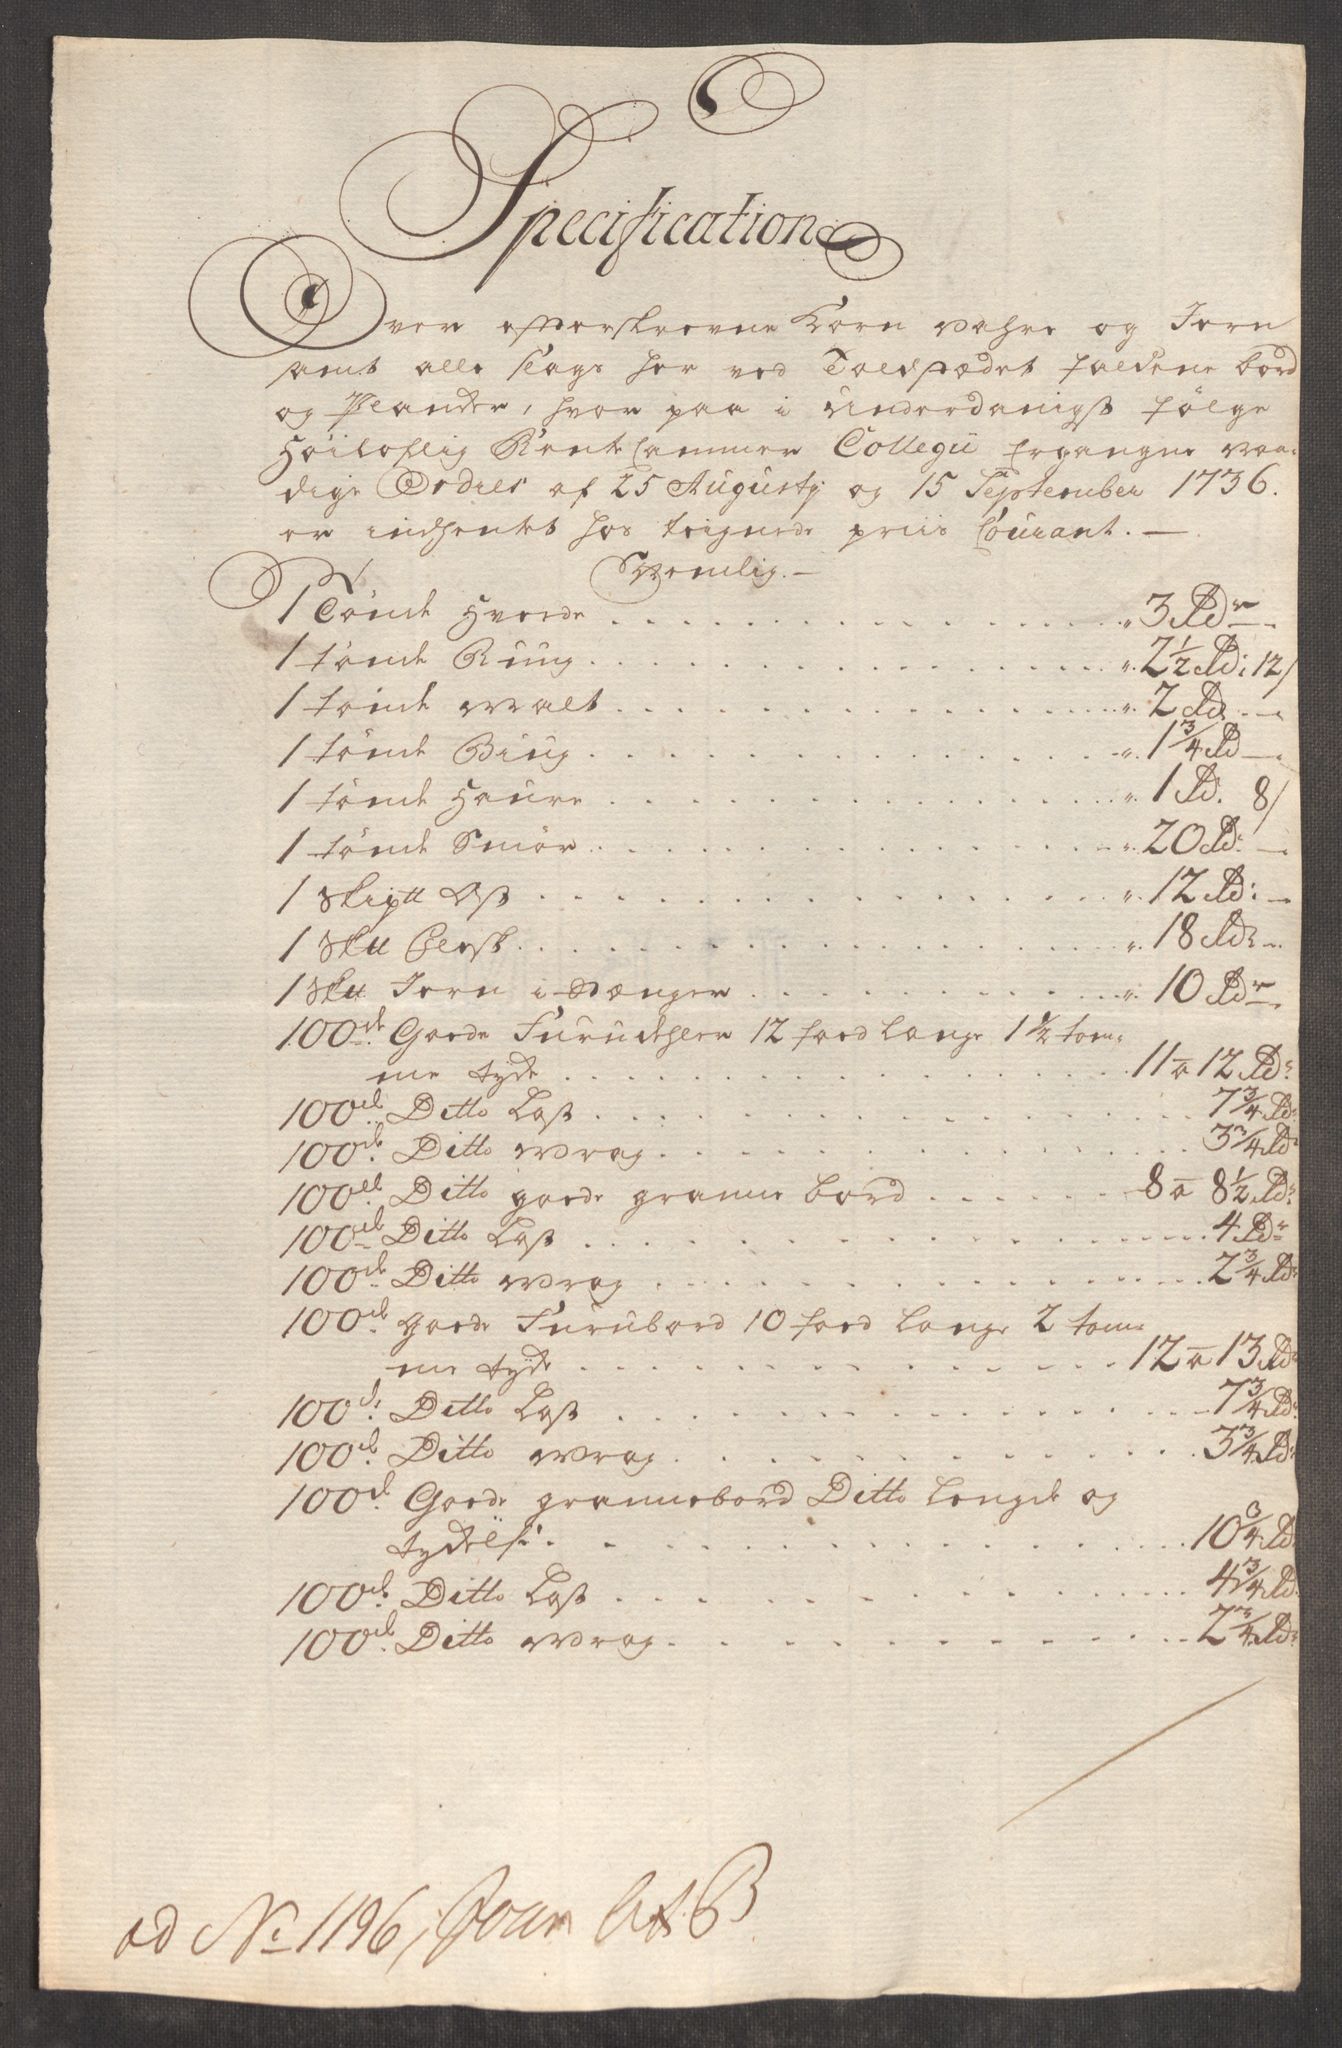 Specification
Over efterskrevne Korn vahre og Jern
samt alle slags her ved Toldstædet faldene bord
og Plancker, hvor paa i underdanigst følge
Høiloflig Rente Cammer Collegii Ergangne naa-
dige Ordres af 25 Augusty og 15 September 1736.
er indhentet hos teignede priis Courant. —
Nemlig. —
1 Tønde Hvede . . . 3 Rdr —
1 tønde Rug . . . 2 1/2 Rd: 12/
1 tønde Malt . . . 2 Rd. —
1 tønde Biug . . . 1 3/4 Rd —
1 tønde Haure . . . 1 Rd. 8/
1 tønde Smør . . . 20 Rd: —
1 Skipll Ost . . . 12 Rd: —
1 Skll Flesk . . . 18 Rdr —
1 Skll Jern i Stænger . . . 10 Rdr —
100de Goede Furudehler 12 foed lange 1 1/2 tom-
me tyde . . . 11 a 12 Rdr
100de Ditto Last . . . 7 3/4 Rdr
100de Ditto Wrag . . . 3 3/4 Rd
100de Ditto goede granne bord . . . 8 a 8 1/2 Rdr
100de Ditto Last . . . 4 Rdr
100de Ditto Wrag . . . 2 3/4 Rdr
100de goede Furubord 10 foed lange 2 tom-
me tyde . . . 12 a 13 Rdr
100d: Ditto Last . . . 7 3/4 Rdr
100de Ditto Wrag . . . 3 3/4 Rdr
100d. Goede grannebord Ditto Lengde og
tydelse . . . 10 3/4 Rd.
100de Ditto Last . . . 4 3/4 Rd.
100de Ditto Wrag . . . 2 3/4 Rdr
ad No 1196, Jour Lit. B